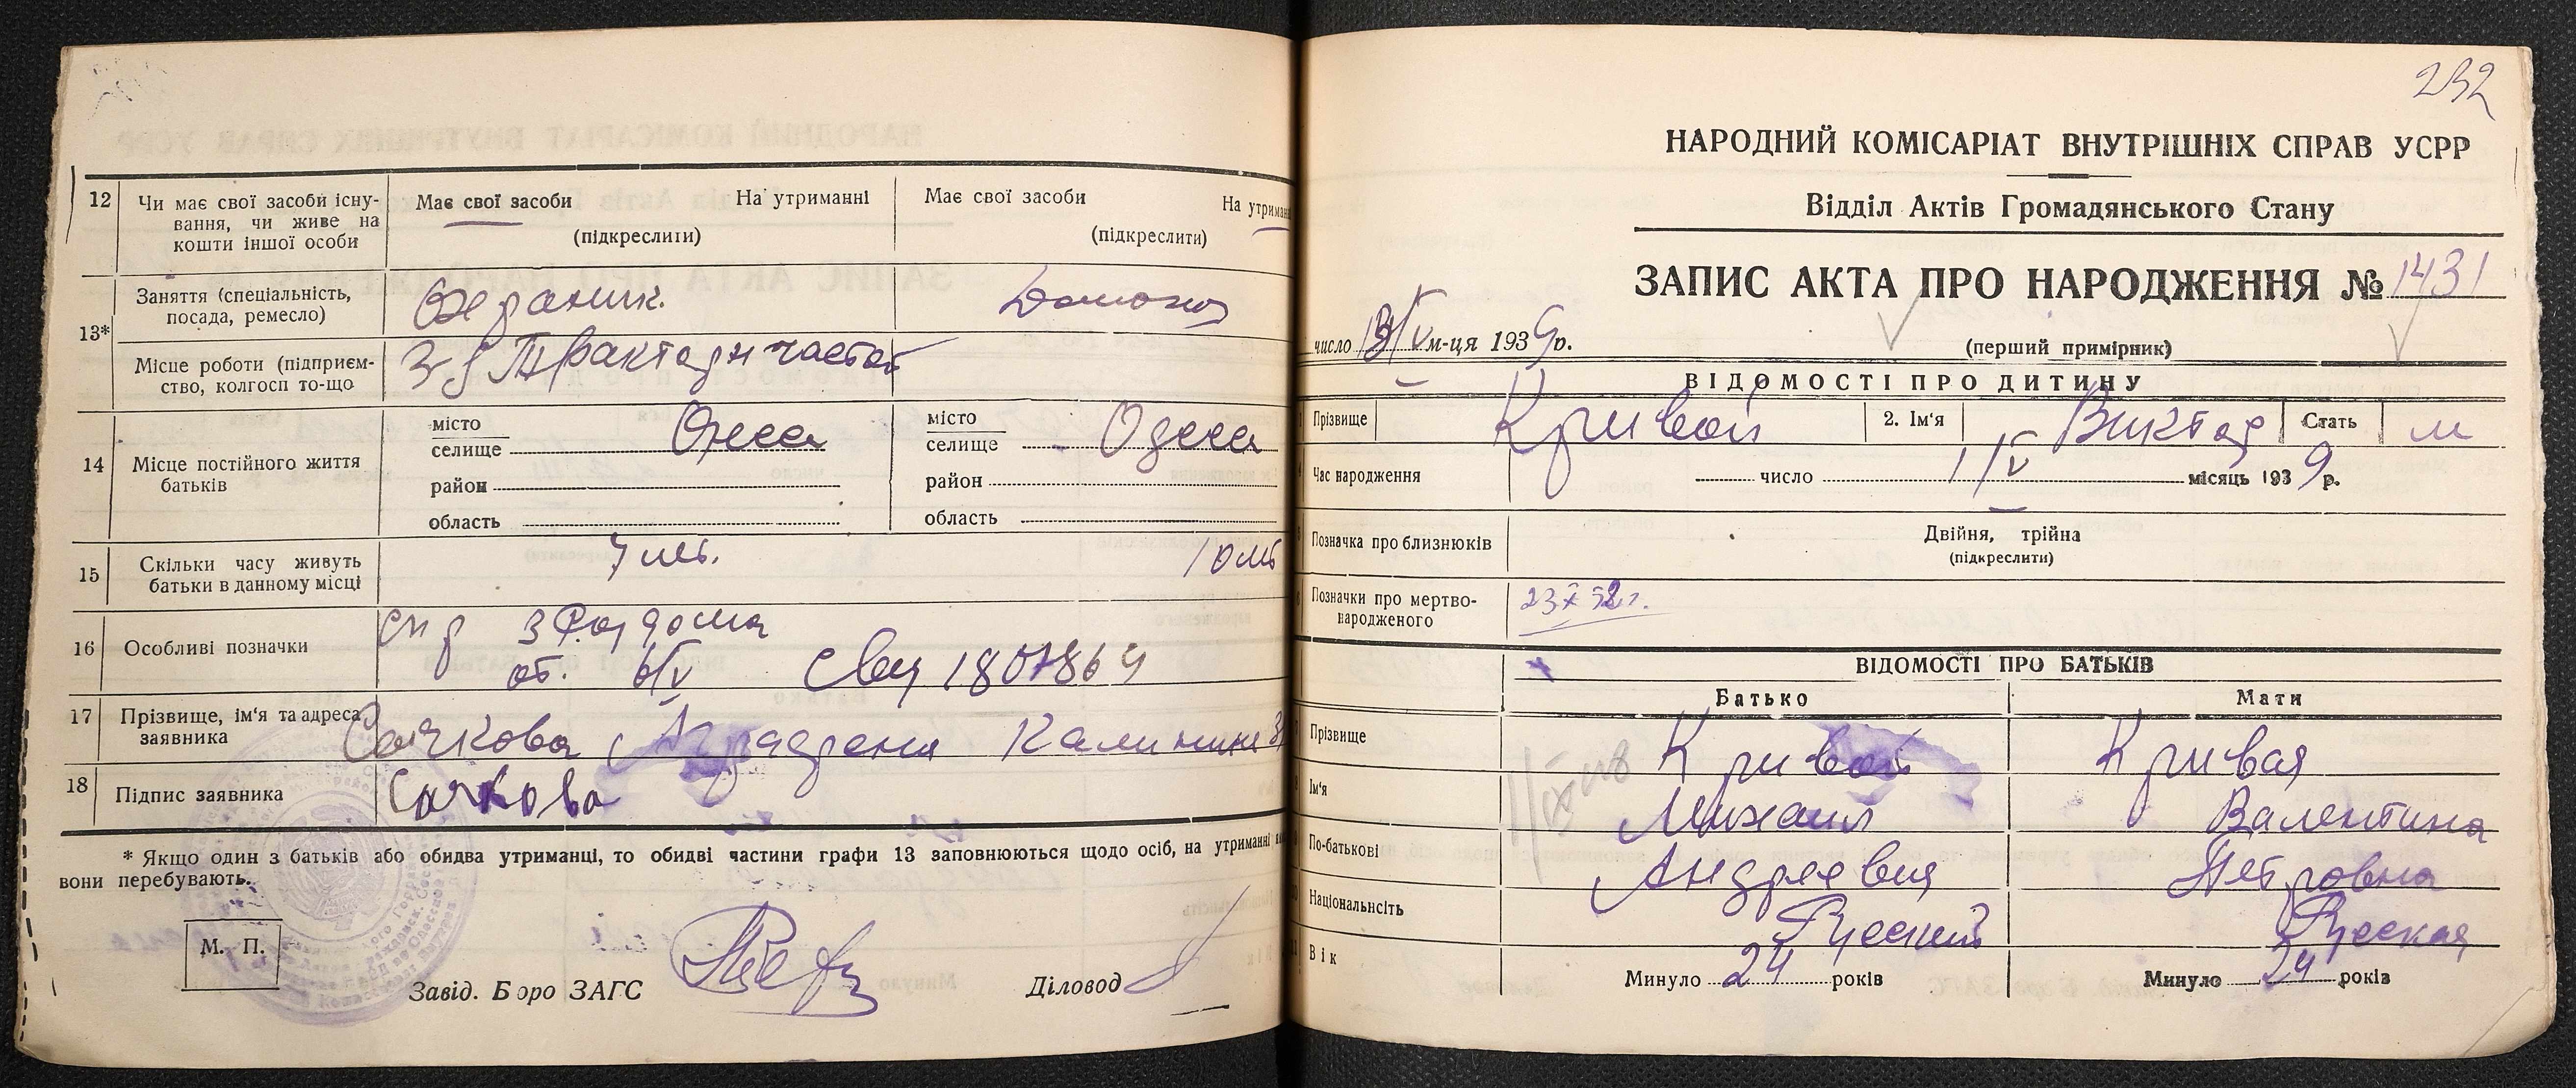 12 Чи має свої засоби існу-
вання, чи живе на
кошти іншої особи
Має свої засоби На утриманні
(підкреслити)
Має свої засоби На утриман
(підкреслити)
13*
Заняття (спеціальність,
посада, ремесло)
Охраник. Домохоз
Місце роботи (підприєм-
ство, колгосп то-що
14 Місце постійного життя
батьків
місто
селище Одесса
район
область
місто
селище Одесса
район
область
15 Скільки часу живуть
батьки в данному місці
7 лет. 10 лет
16 Особливі позначки
спр 3 Роддома
от. 6/V Свид 1807869
17 Прізвище, ім'я та адреса
заявника
Сачкова Агрофена Калинина
18 Підпис заявника Сачкова
* Якщо один з батьків або обидва утриманці, то обидві частини графи 13 заповнюються щодо осіб, на утриманні
вони перебувають.
М. П.
Завід. Бюро ЗАГС
Діловод
232
НАРОДНИЙ КОМІСАРІАТ ВНУТРІШНІХ СПРАВ УСРР
Відділ Актів Громадянського Стану
ЗАПИС АКТА ПРО НАРОДЖЕННЯ № 1431
число 13/V м-ця 1939 р.
(перший примірник)
ВІДОМОСТІ ПРО ДИТИНУ
Прізвище Кривой 2. Ім'я Виктор Стать м
Час народження число 1/V місяць 1939 р.
Позначка про близнюків
Двійня, трійна
(підкреслити)
Позначки про мертво-
народженого
23 X 52 г.
ВІДОМОСТІ ПРО БАТЬКІВ
Батько Мати
Прізвище Кривой Кривая
Ім'я Михаил Валентина
По-батькові Андреевич Петровна
Національнсіть Русский Русская
Вік
Минуло 24 років Минуло 24 років